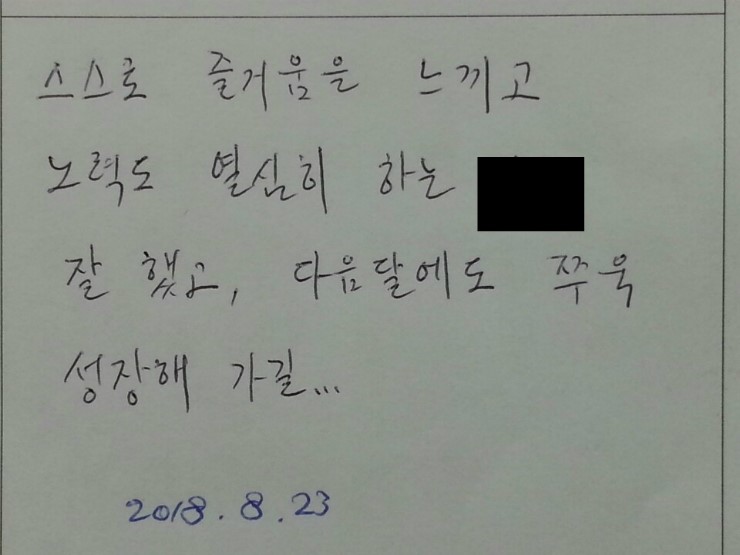 스스로 즐거움을 느끼고
노력도 열심히 하는
잘 했고, 다음달에도 쭈욱
성장해 가길...
2018. 8. 23